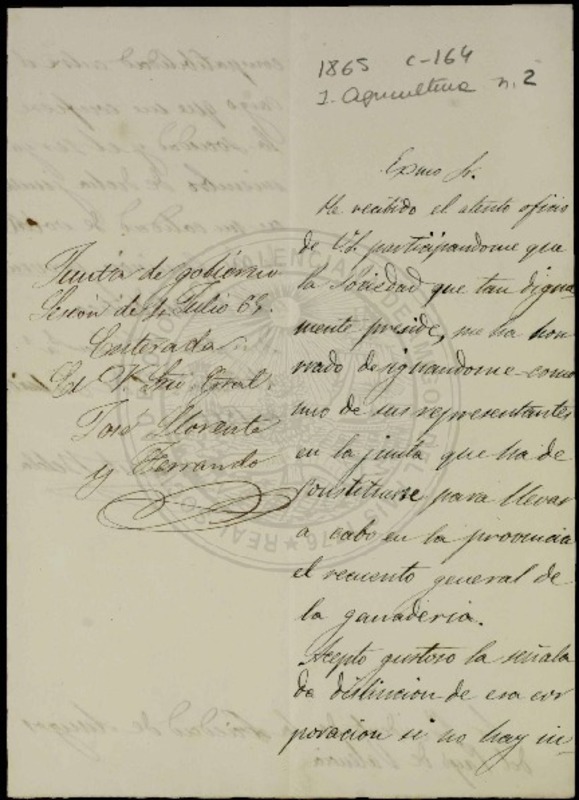 1865 C-164
I. Agricultura n. 2
Exmo Sr.
He recibido el atento oficio
de V.E. participandome que
la Sociedad que tan digna-
mente preside, me ha hon
rado designandome como
uno de sus representantes
en la junta que ha de
constituirse para llevar
a cabo en la provincia
el recuento general de
la ganaderia.
Acepto gustoso la señala
da distincion de esa cor
poracion si no hay in-
Junta de gobierno
Sesion de Julio 65.
Enterada
El Srio Gral.
José Llorente
y Ferrando